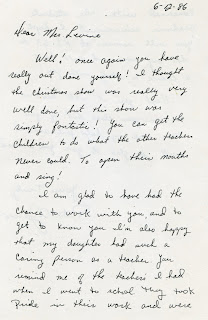 6-12-86
Dear Mrs Levine
Well! once again you have
really out done yourself! I thought
the Christmas show was really very
well done, but this show was
simply fantastic! You can get the
Children to do what the other teachers
Never could. To open their mouths
and sing!
I am glad to have had the
Chance to work with you and to
get to know you I'm also happy
that my daughter had such a
Caring person as a teacher You
remind me of the teachers I had
when I went to school They took
Pride in their work and were